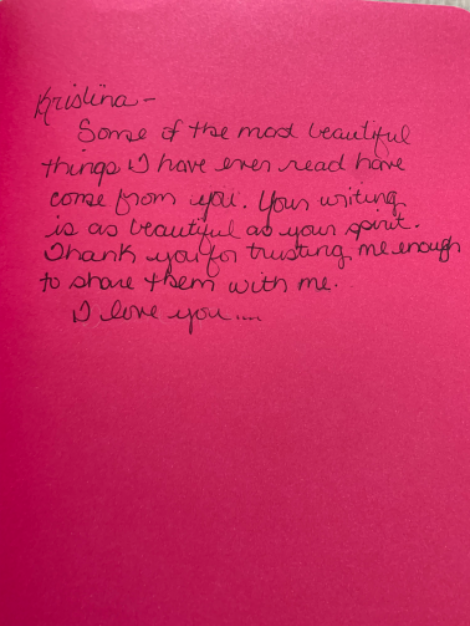 Kristina -
Some of the most beautiful
things I have ever read have
come from you. Your writing
is as beautiful as your spirit.
Thank you for trusting me enough
to share them with me.
I love you....